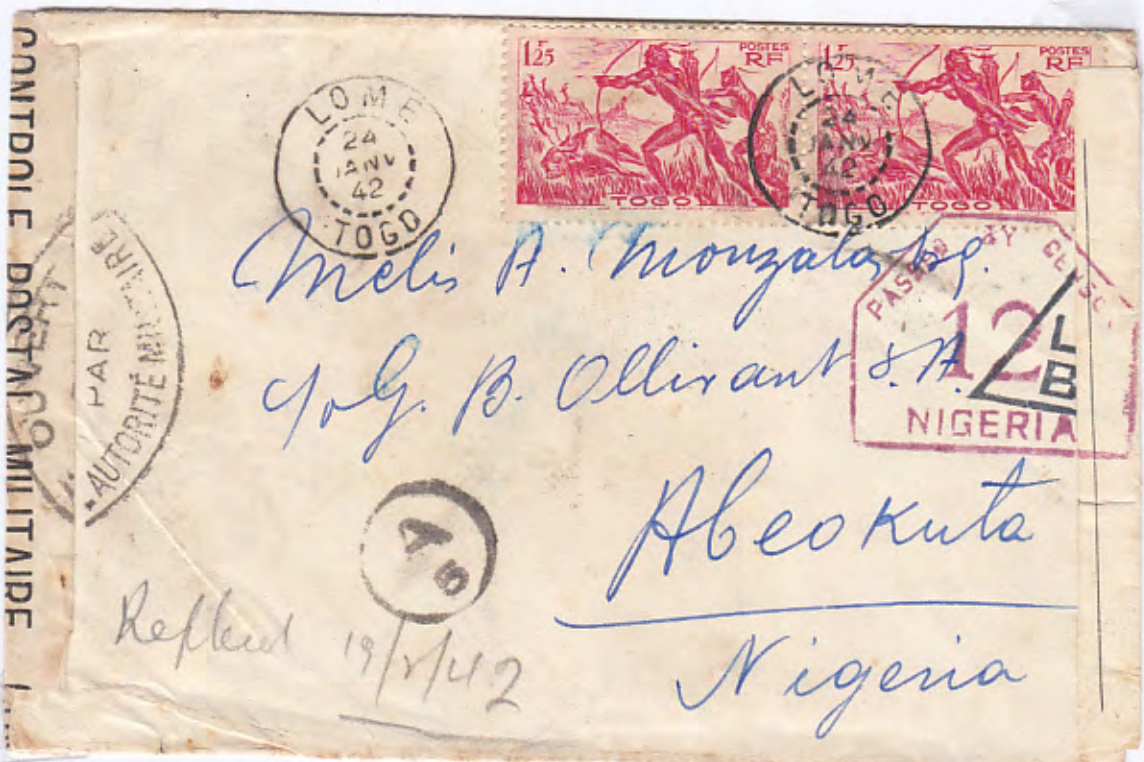 CONTROLE POSTAL MILITAIRE
OUVERT
PAR
AUTORITÉ MILITAIRE
LOME
24
JANV
42
TOGO
1F25
POSTES
RF
TOGO
1F25
POSTES
RF
TOGO
LOME
24
JANV
42
TOGO
PASSED BY CENSOR
12
NIGERIA
L
B
A.
c/o G. B. Ollivant S.A.
Abeokuta
Nigeria
A 5
19/2/42